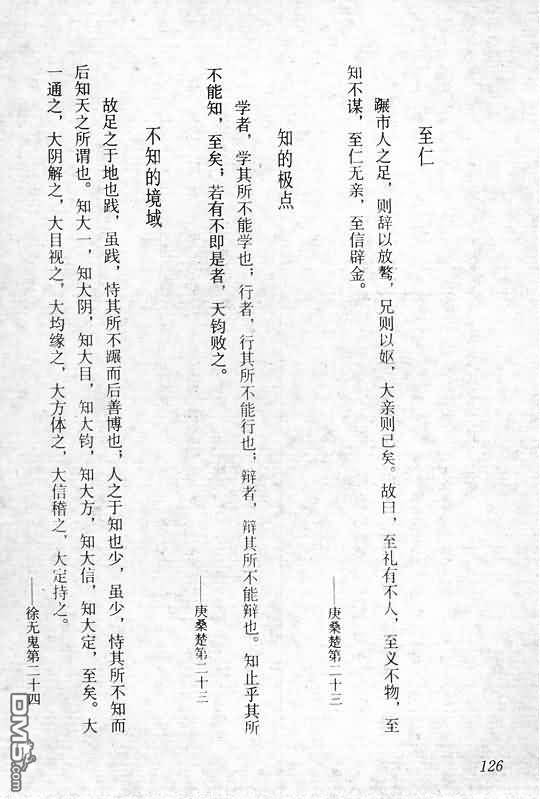 至仁
蹍市人之足，则辞以放骜，兄则以妪，大亲则已矣。故曰，至礼有不人，至义不物，至
知不谋，至仁无亲，至信辟金。
——庚桑楚第二十三
知的极点
学者，学其所不能学也；行者，行其所不能行也；辩者，辩其所不能辩也。知止乎其所
不能知，至矣；若有不即是者，天钧败之。
——庚桑楚第二十三
不知的境域
故足之于地也践，虽践，恃其所不蹍而后善博也；人之于知也少，虽少，恃其所不知而
后知天之所谓也。知大一，知大阴，知大目，知大钧，知大方，知大信，知大定，至矣。大
一通之，大阴解之，大目视之，大均缘之，大方体之，大信稽之，大定持之。
——徐无鬼第二十四
126